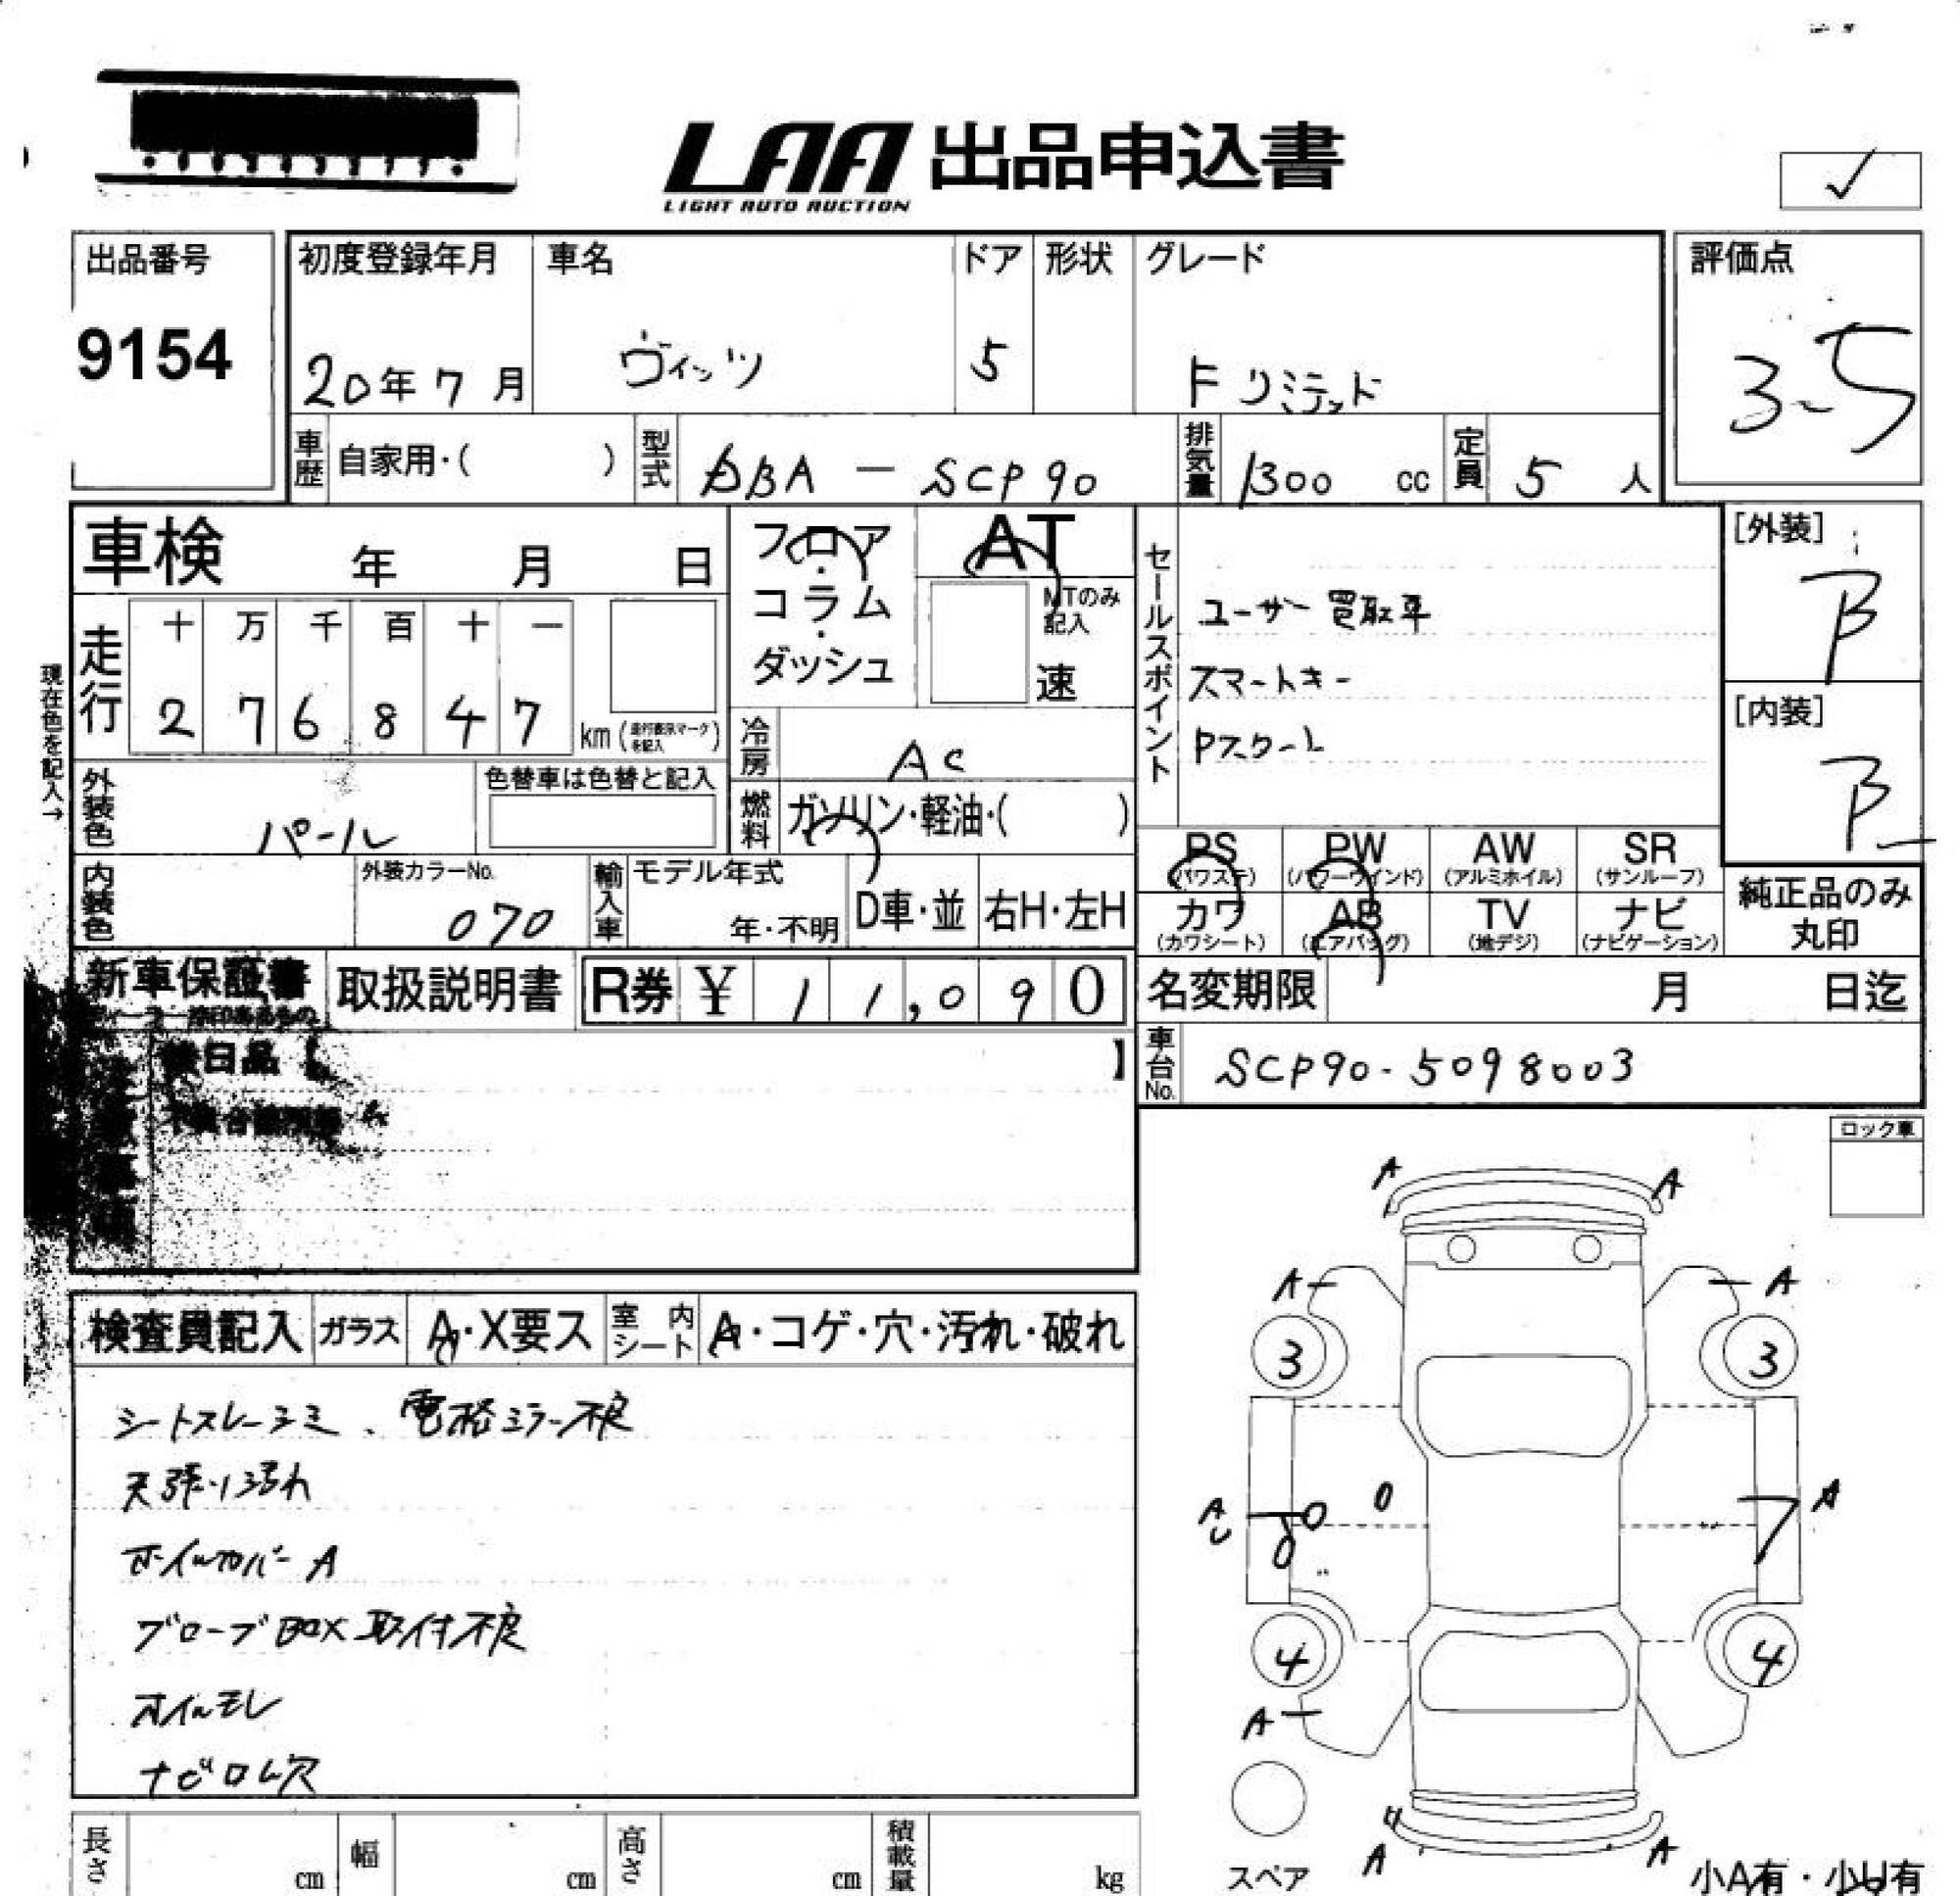 LAA 出品申込書
LIGHT AUTO AUCTION
✓
出品番号
9154
初度登録年月
20年7月
車名
ヴィッツ
ドア
5
形状
グレード
F リミテッド
評価点
3-5
車歴
自家用・( )
型式
DBA - SCP90
排気量
1300 cc
定員
5 人
車検 年 月 日
フロア・コラム・ダッシュ
AT
MTのみ記入
速
セールスポイント
ユーザー買取車
スマートキー
Pスタート
[外装]
B
[内装]
B-
現在色を記入→
走行
十 万 千 百 十 一
2 7 6 8 4 7
km (走行表示マークを記入)
冷房
AC
外装色
パール
色替車は色替と記入
燃料
ガソリン・軽油・( )
内装色
外装カラーNo.
070
輸入車
モデル年式
年・不明
D車・並
右H・左H
PS (パワステ)
PW (パワーウインド)
AW (アルミホイル)
SR (サンルーフ)
カワ (カワシート)
AB (エアバッグ)
TV (地デジ)
ナビ (ナビゲーション)
純正品のみ丸印
新車保証書
取扱説明書
R券 ¥ 11,090
名変期限 月 日迄
後日品【 】
車台No.
SCP90-5098003
ロック車
検査員記入
ガラス
A・X要ス
室内シート
A・コゲ・穴・汚れ・破れ
シートスレ・シミ、電格ミラー不良
天張り汚れ
ホイルカバーA
グローブBOX取付不良
オイルモレ
ナビロム欠
A A
A A
3 3
A A
4 4
A
A A
スペア
小A有・小U有
長さ cm
幅 cm
高さ cm
積載量 kg